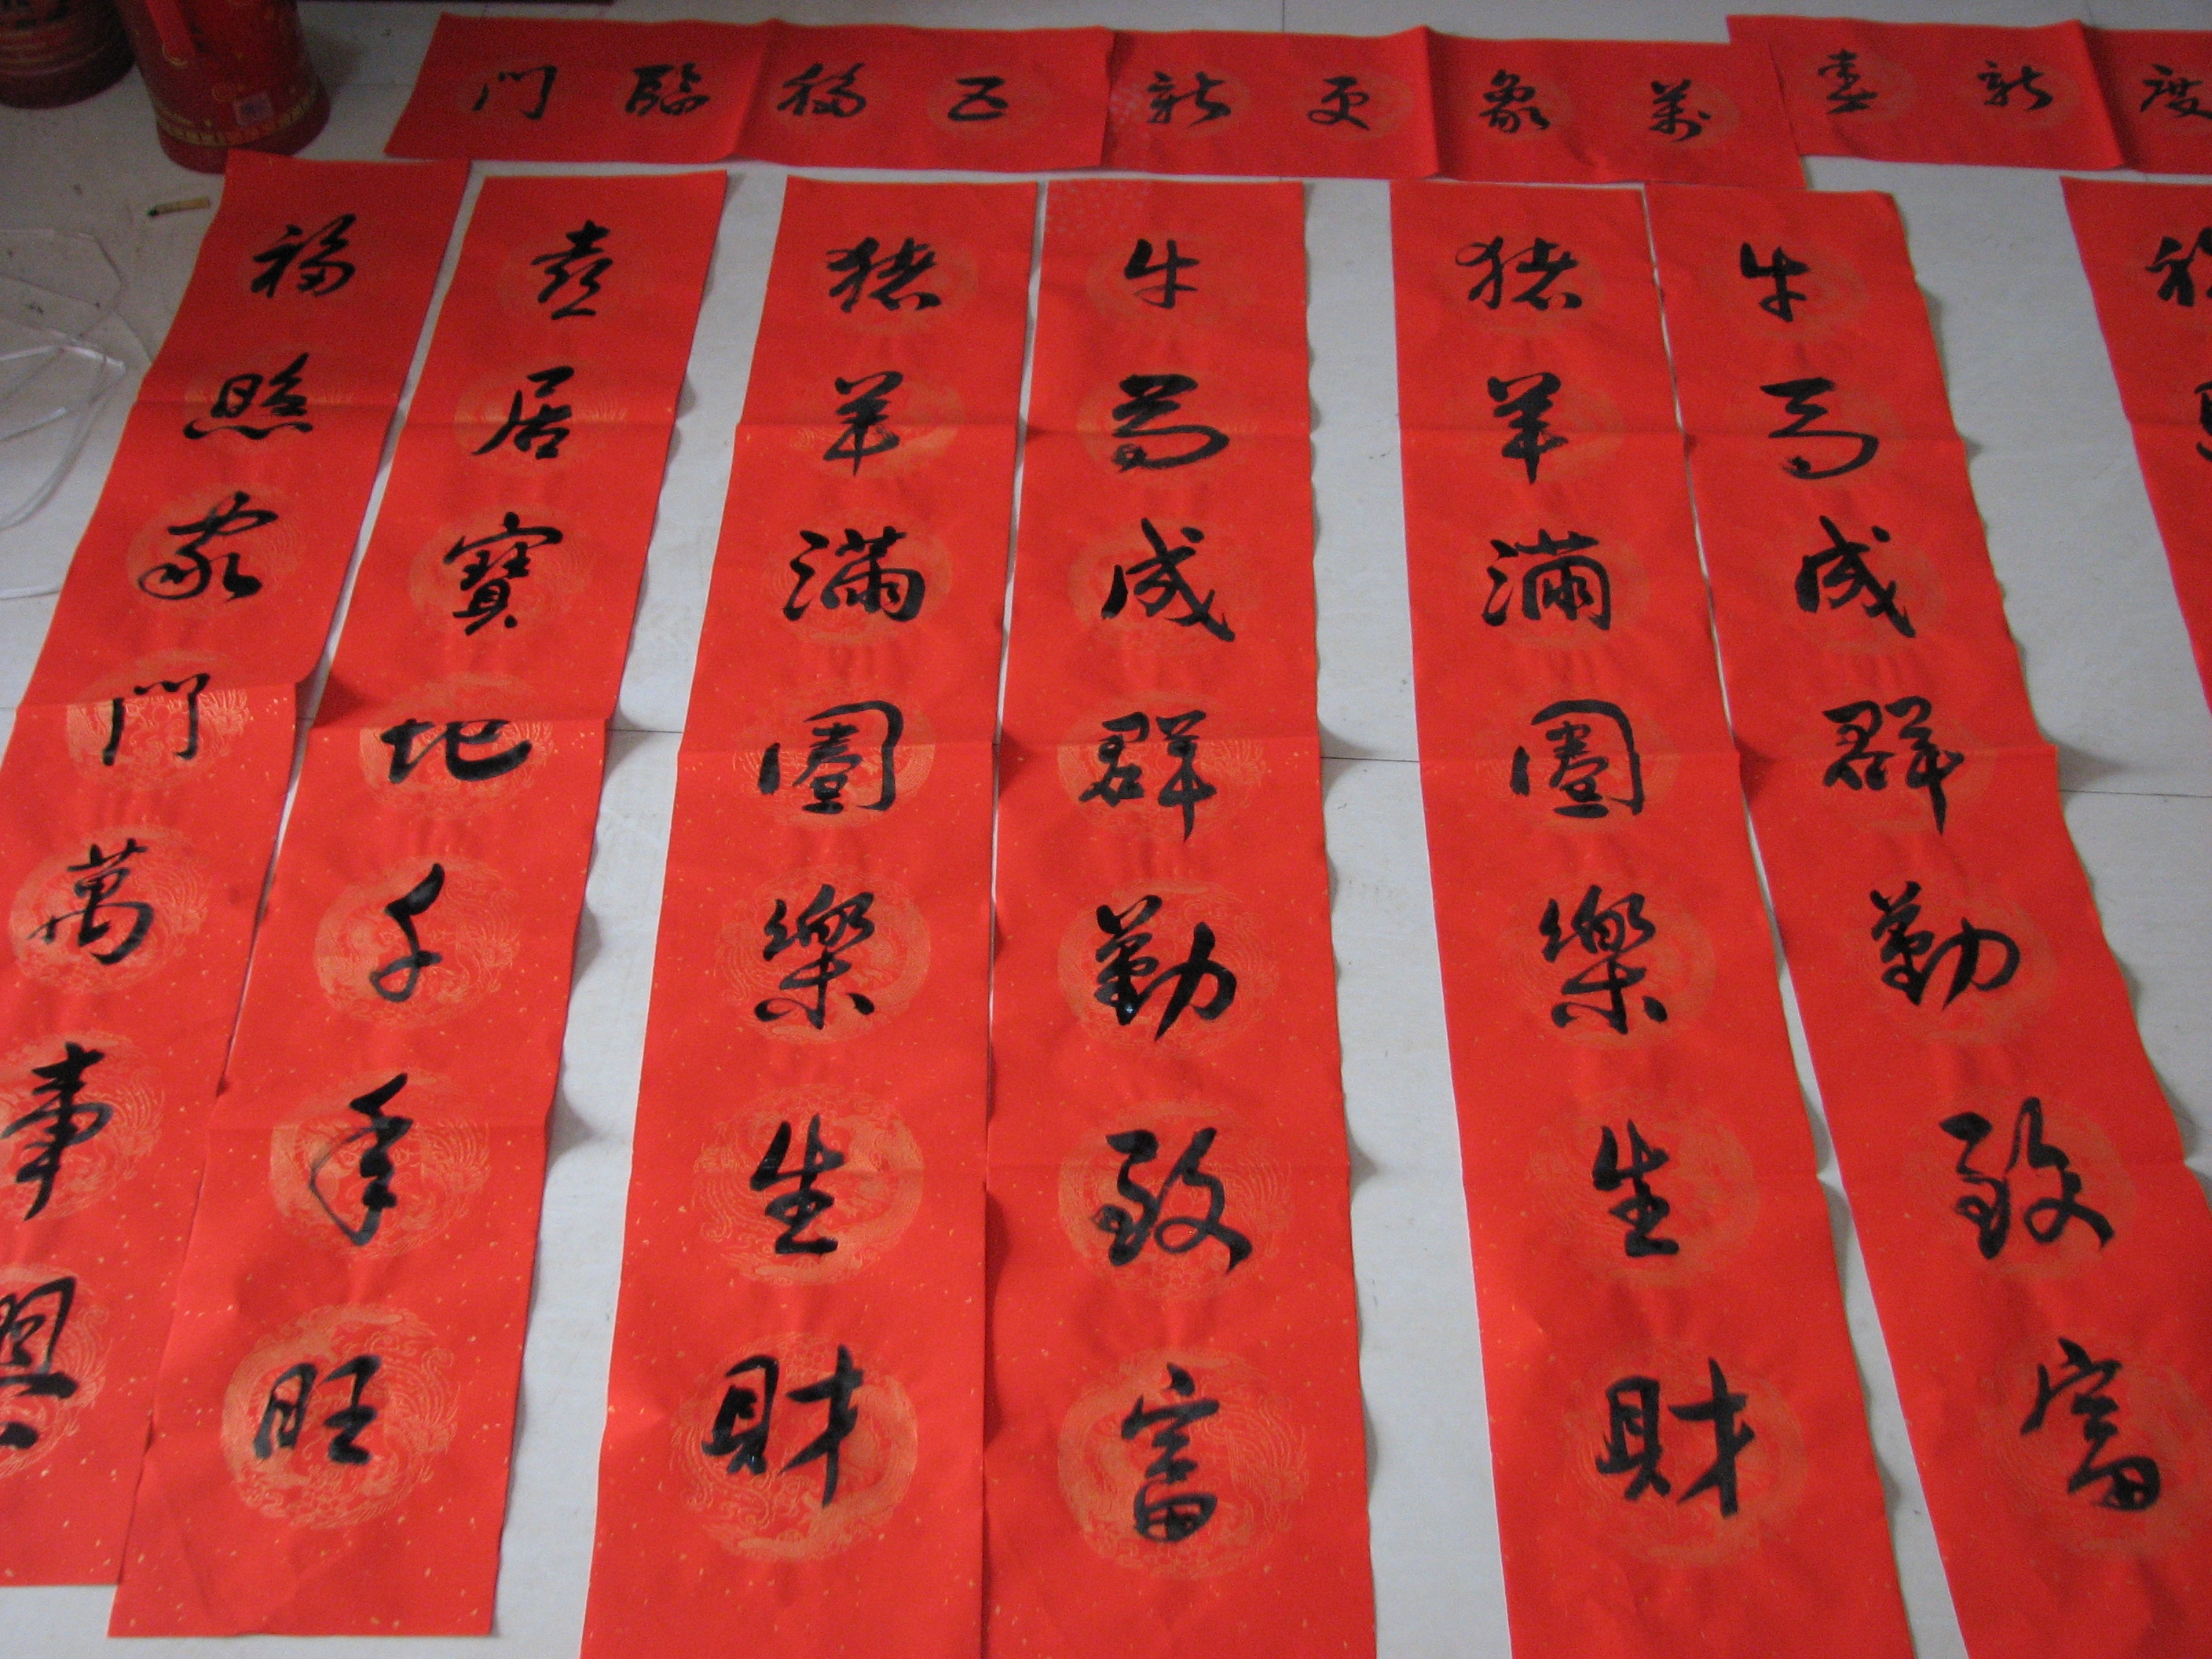 度新春
萬象更新
五福臨門
牛馬成群勤致富
猪羊滿圈樂生財
牛馬成群勤致富
猪羊滿圈樂生財
喜居寶地千年旺
福照家門萬事興